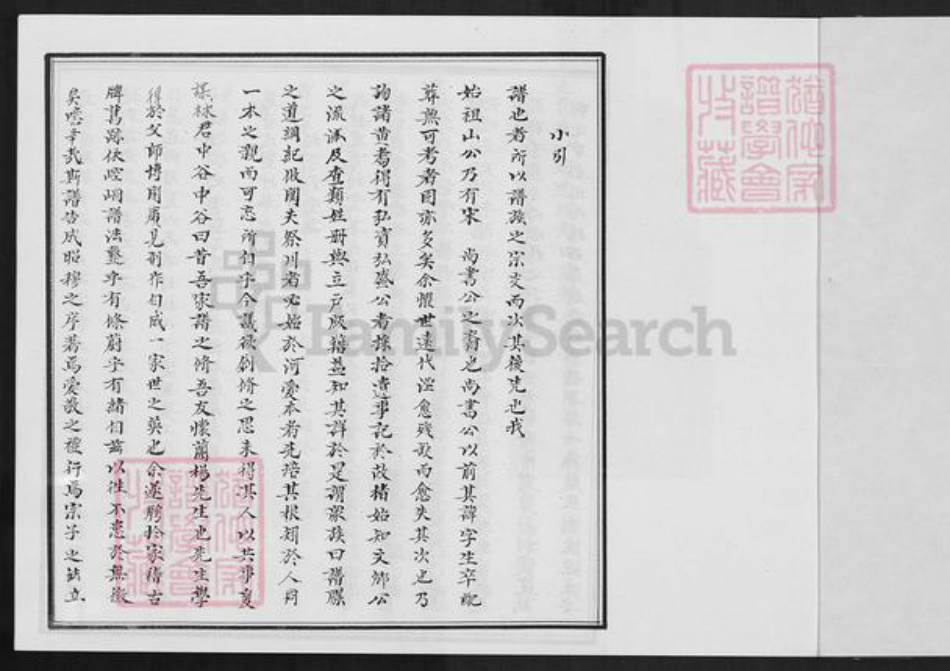 小引
譜也者所以譜族之宗支而次其後先也我
始祖山公乃有宋 尚書公之裔也尚書公以前其諱字生卒配
葬無可考者固亦多矣余懼世遠代湮愈殘缺而愈失其次也乃
詢諸黃耇得有私實弘盛公者採拾遺事記於故楮始知文鄉公
之流派及查類姓册與立户版籍益知其詳於是謂眾族曰譜牒
之道綱紀攸關夫祭川者必始於河愛本者先培其根矧於人同
一本之親而可忘所自乎今議欲創脩之思未得其人以共事爰
謀梯君中谷中谷曰昔吾家譜之脩吾友懷蘭楊先生也先生學
得於父師博聞廣見制作自成一家世之英也余遂聘於家稽古
牌舊蹟依崆峒譜法鑿乎有條蔚乎有緒自茲以往不患於無徵
矣噫幸哉斯譜告成昭穆之序著焉愛敬之禮行焉宗子之法立
譜學會
收藏
FamilySearch